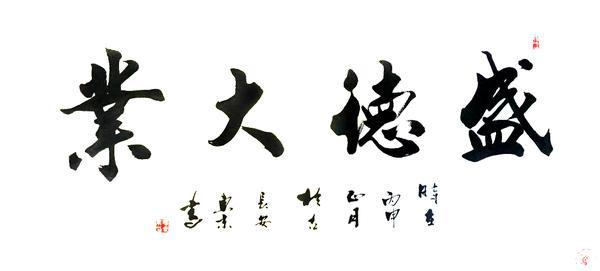 盛德大業
時在
丙申
正月
於古
長安
書